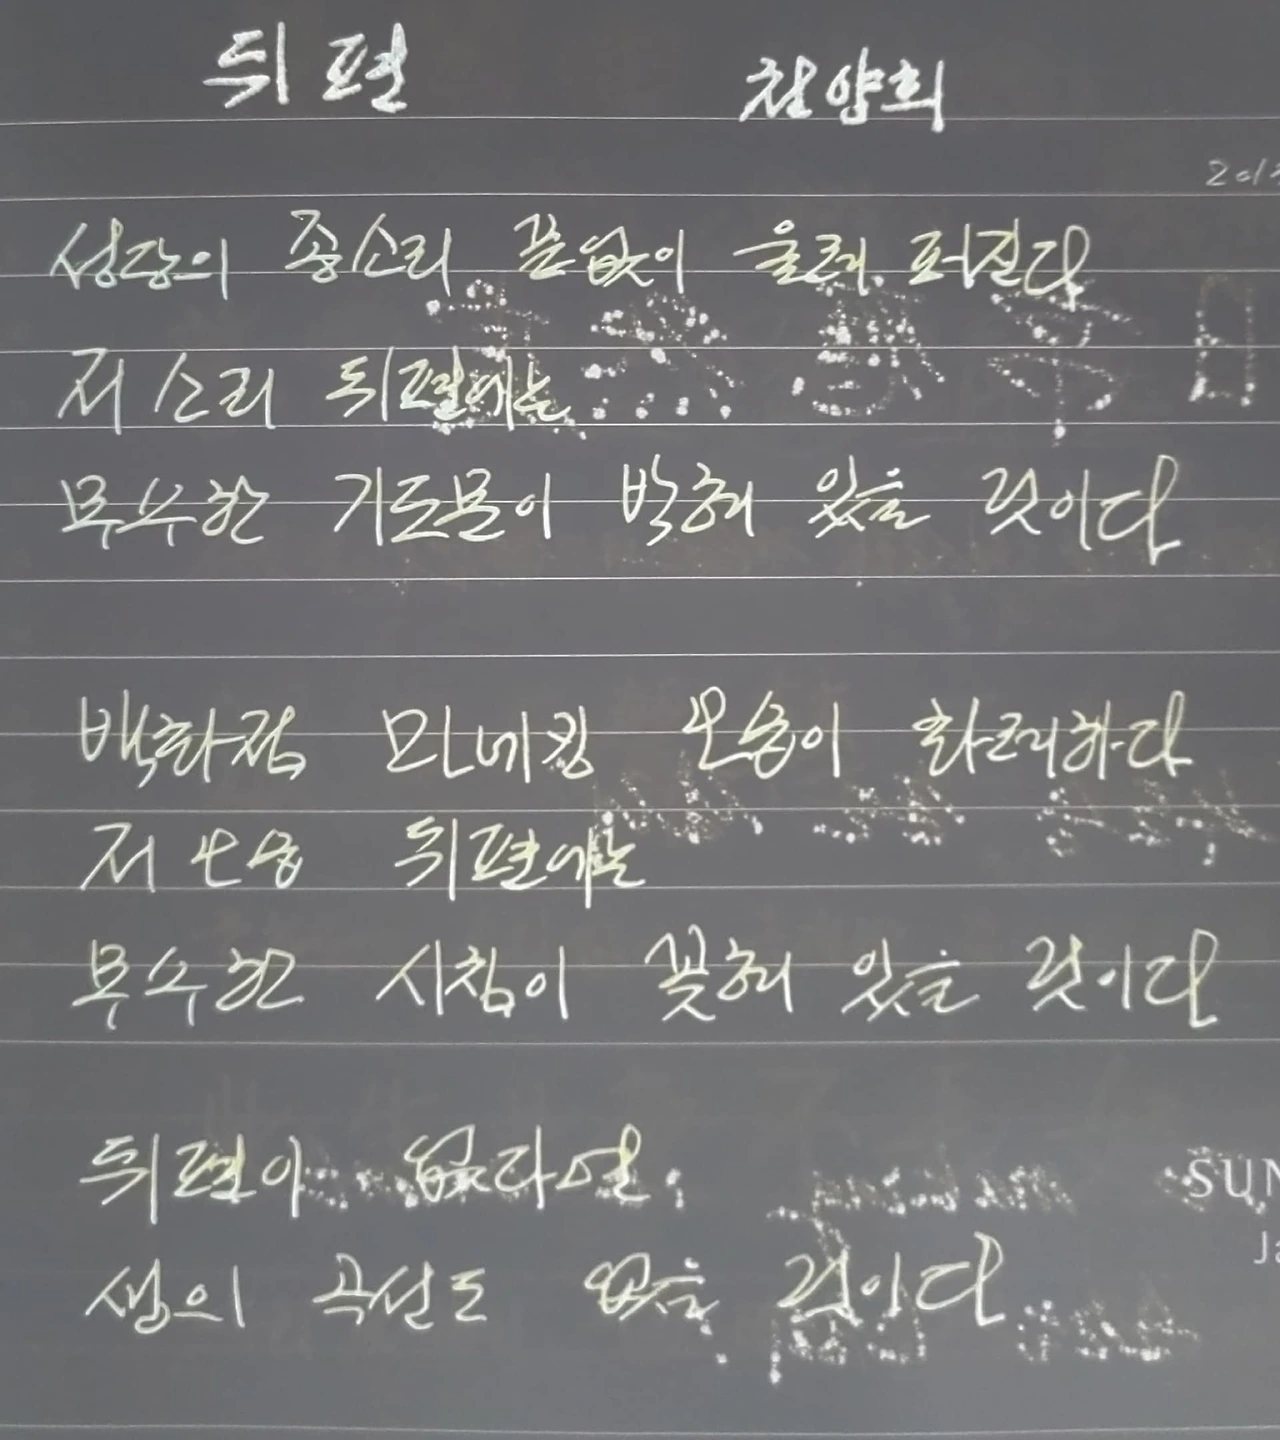 뒤편 천양희
성당의 종소리 끝없이 울려 퍼진다
저 소리 뒤편에는
무수한 기도문이 박혀 있을 것이다
백화점 마네킹 옷이 화려하다
저 옷 뒤편에는
무수한 시침이 꽂혀 있을 것이다
뒤편이 없다면
생의 곡선도 없을 것이다
SUN